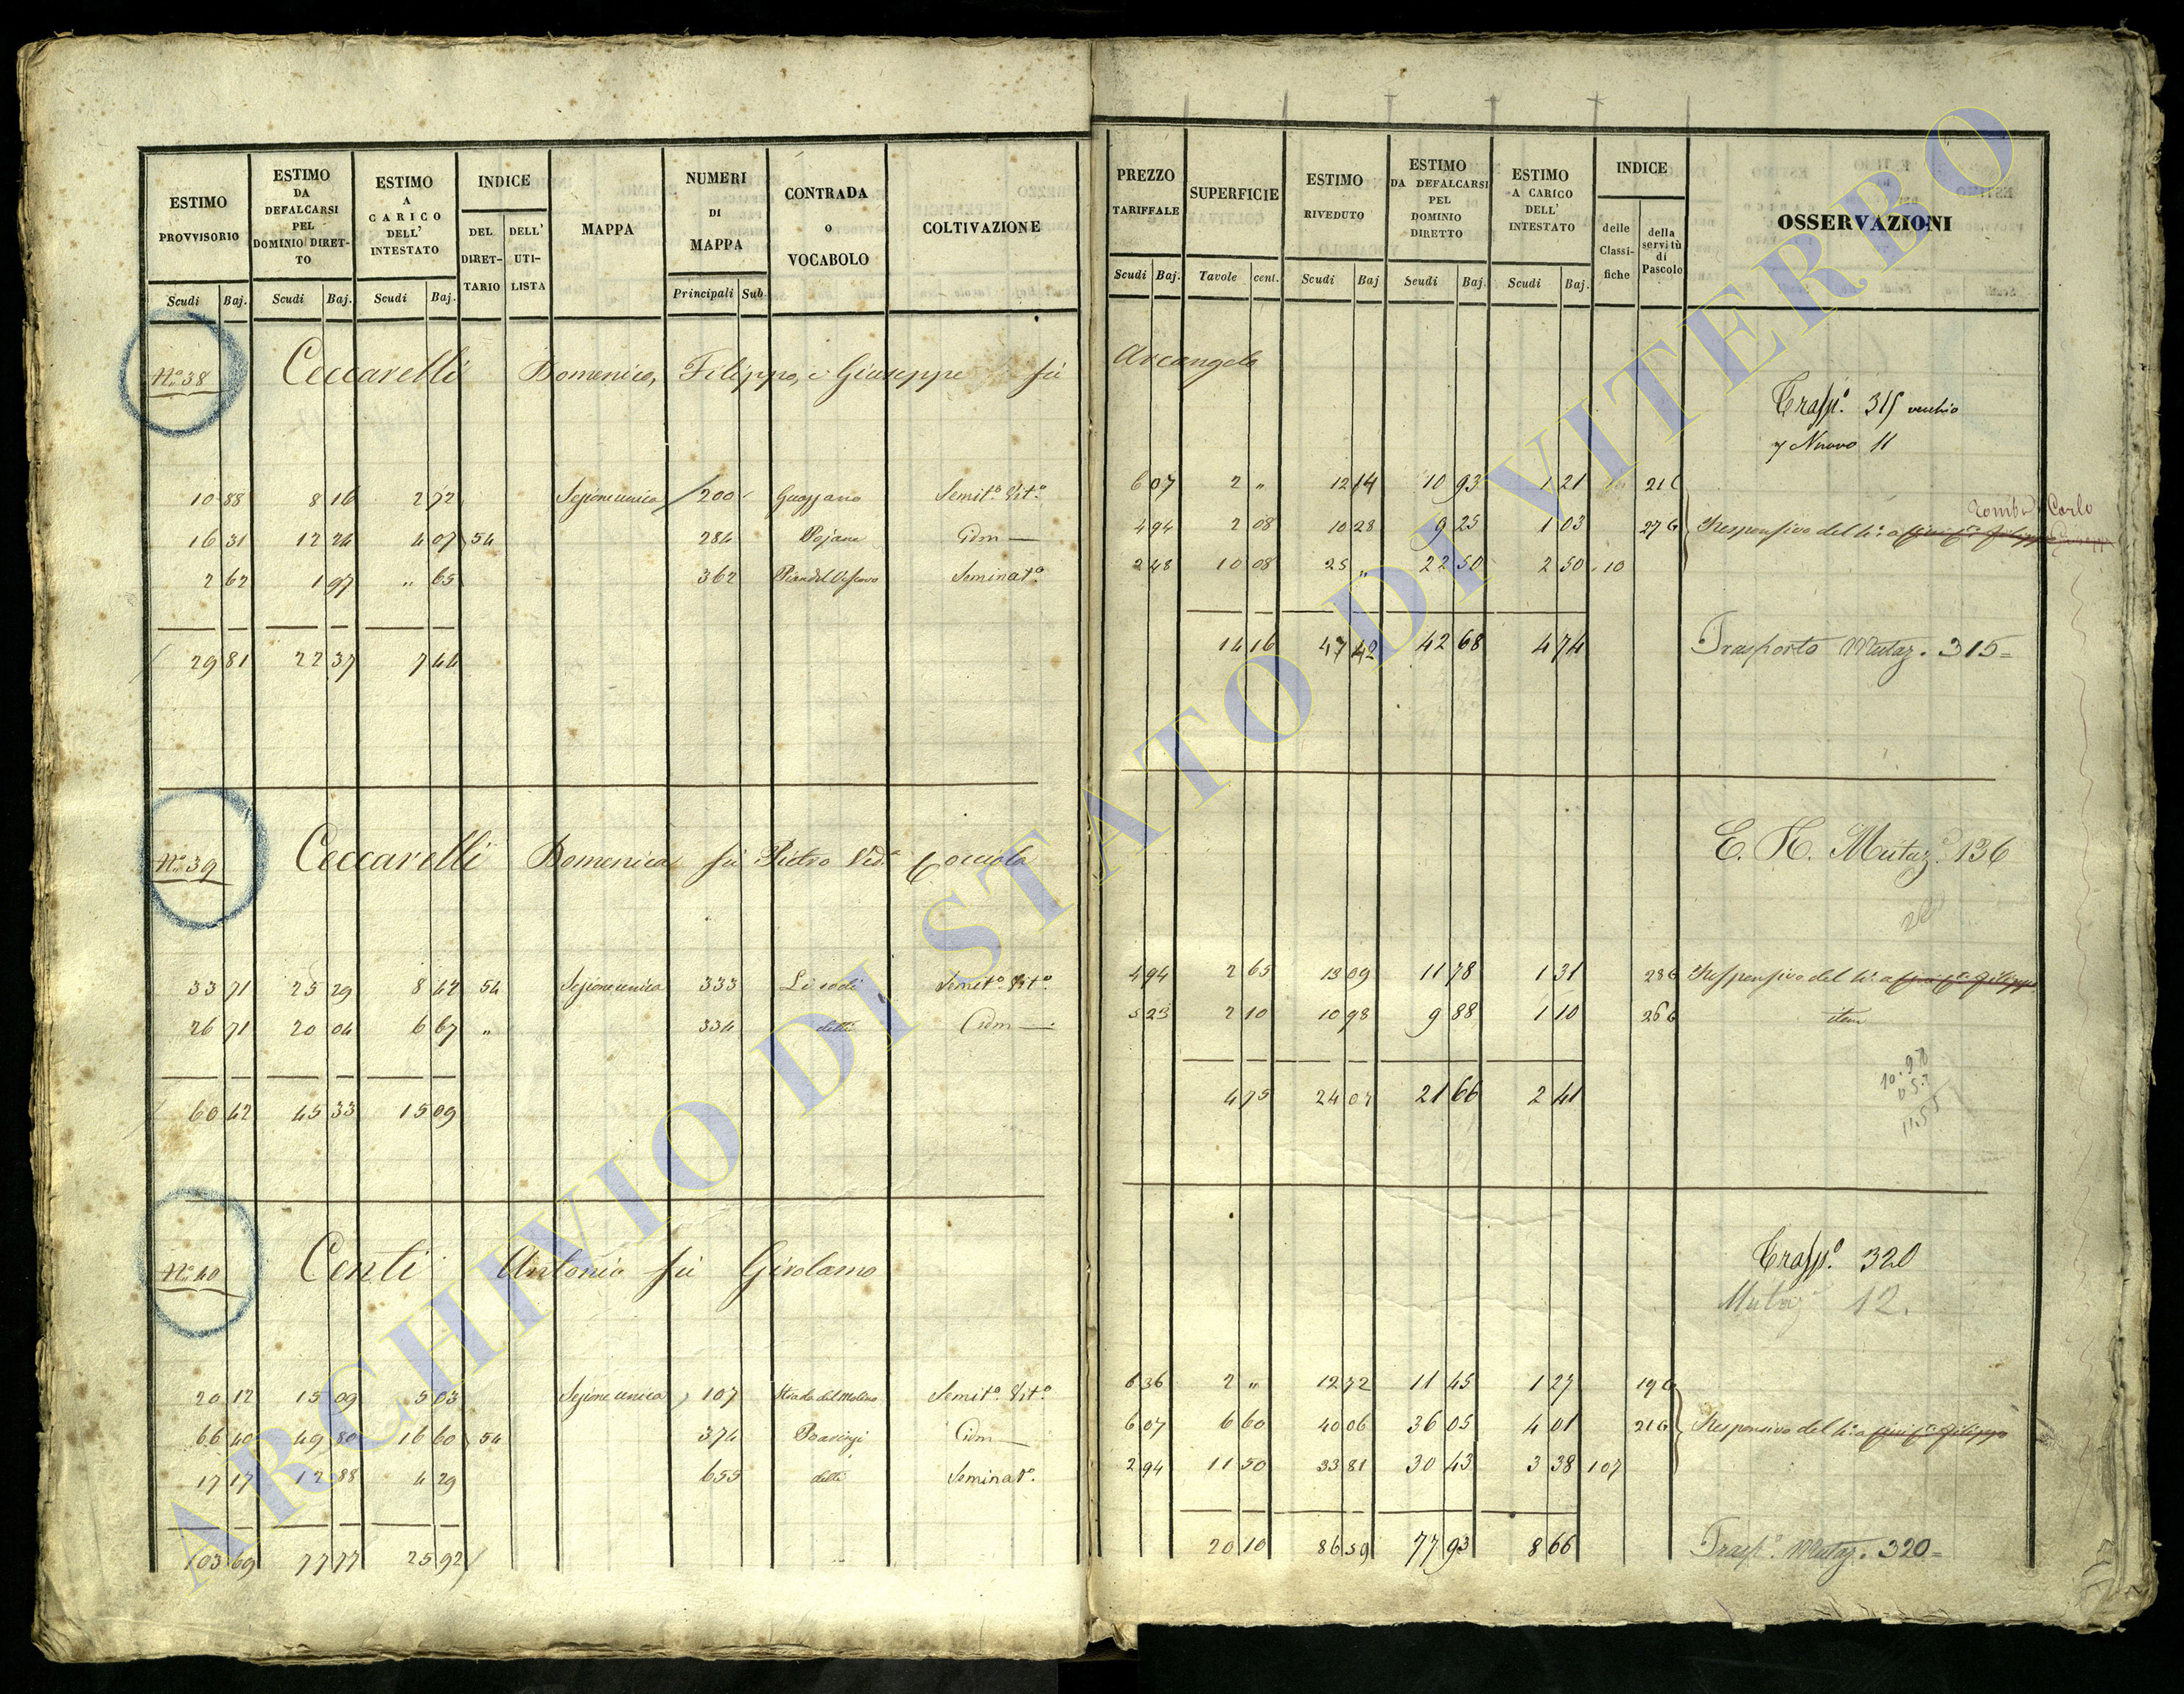 ESTIMO PROVVISORIO
ESTIMO DA DEFALCARSI PEL DOMINIO DIRETTO
ESTIMO A CARICO DELL' INTESTATO
INDICE
DEL DIRETTARIO
DELL' UTILISTA
MAPPA
NUMERI DI MAPPA
CONTRADA o VOCABOLO
COLTIVAZIONE
PREZZO TARIFFALE
SUPERFICIE
ESTIMO RIVEDUTO
ESTIMO DA DEFALCARSI PEL DOMINIO DIRETTO
ESTIMO A CARICO DELL' INTESTATO
INDICE
delle Classifiche
della servitù di Pascolo
OSSERVAZIONI
Scudi Baj. Scudi Baj. Scudi Baj. Principali Sub. Scudi Baj. Tavole cent. Scudi Baj Scudi Baj. Scudi Baj.
N.o 38 Ceccarelli Domenico, Filippo, e Giuseppe fù Arcangelo
Trasp.o 315 vecchio
Nuovo 11
10 88 8 16 2 72 Sezione unica 200 Semit.o Vit.o 6 07 2 " 12 14 10 93 1 21 216
Carlo
16 31 12 24 4 07 54 284 Pojane Idm 4 94 2 08 10 28 9 25 1 03 276 Responsivo del 4.o a
2 62 1 97 " 65 362 Pian del Vescovo Seminat.o 2 48 10 08 25 " 22 50 2 50 10
29 81 22 37 7 44 14 16 47 42 42 68 4 74 Trasporto Mutaz. 315=
N.o 39 Ceccarelli Domenica fù Pietro Ved.a Coccola
E. N. Mutaz.e 136
33 71 25 29 8 42 54 Sezione unica 333 Li sodi Semit.o Vit.o 4 94 2 65 13 09 11 78 1 31 286 Responsivo del 4.o a
26 71 20 04 6 67 " 334 detti Idm 5 23 2 10 10 98 9 88 1 10 266 item
60 42 45 33 15 09 4 75 24 07 21 66 2 41
N.o 40 Centi Antonio fù Girolamo
Trasp.o 320
Mutaz 12.
20 12 15 09 5 03 Sezione unica 107 Strada del Molino Semit.o Vit.o 6 36 2 " 12 72 11 45 1 27 196
66 40 49 80 16 60 54 374 Idm 6 07 6 60 40 06 36 05 4 01 216 Responsivo del 4.o a fini f.o Filippo
17 17 12 88 4 29 655 detti Seminat.o 2 94 11 50 33 81 30 43 3 38 107
103 69 77 77 25 92 20 10 86 59 77 93 8 66 Trasp.o Mutaz. 320=
ARCHIVIO DI STATO DI VITERBO